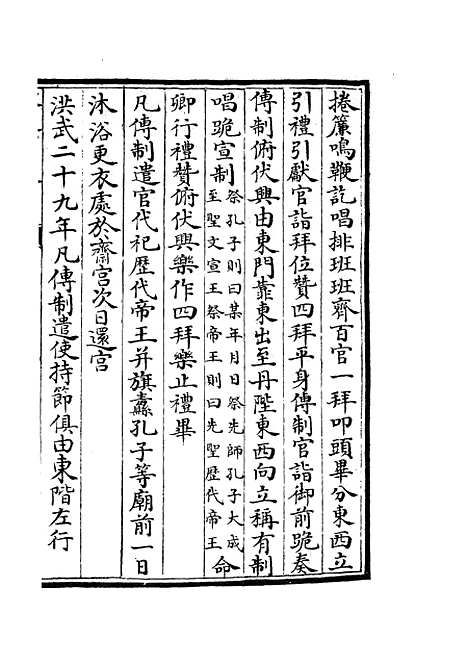 捲簾鳴鞭訖唱排班班齊百官一拜叩頭畢分東西立
引禮引獻官詣拜位贊四拜平身傳制官詣御前跪奏
傳制俯伏興由東門靠東出至丹陛東西向立稱有制
唱跪宣制祭孔子則曰某年月日祭先師孔子大成
至聖文宣王祭帝王則曰先聖歷代帝王命
卿行禮贊俯伏興樂作四拜樂止禮畢
凡傳制遣官代祀歷代帝王并旗纛孔子等廟前一日
沐浴更衣處於齋宮次日還宮
洪武二十九年凡傳制遣使持節俱由東階左行